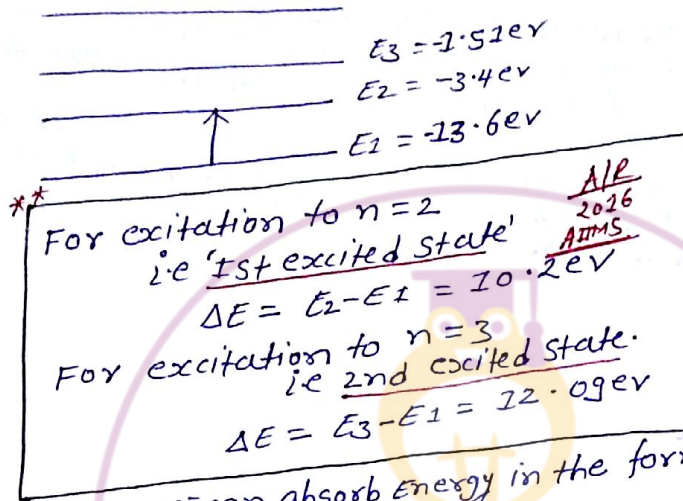 E3 = -1.51ev
E2 = -3.4ev
E1 = -13.6ev
**
For exitation to n=2
i.e 'Ist excited state'
A/R
2016
AIIMS
ΔE = E2-E1 = 10.2ev
For excitation to n=3
ie 2nd excited state.
ΔE = E3-E1 = 12.09ev
absorb Energy in the for